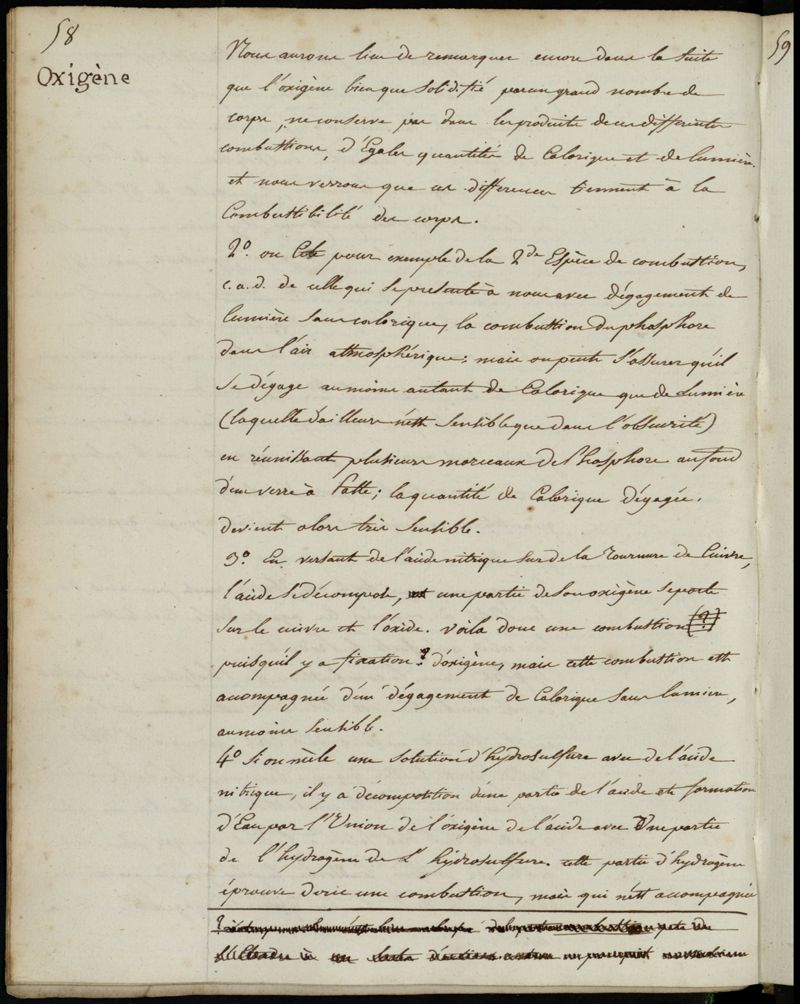 58
59
Oxigène
Nous aurons lieu de remarquer encore dans la suite
que l'oxigène bien que solidifié par un grand nombre de
corps, ne conserve pas dans les produits de ces differentes
combustions, d'Egales quantités de Calorique et de lumière.
et nous verrons que ces differences tiennent à la
Combustibilité des corps.
2° on Cite pour exemple de la 2de Espèce de combustion,
c.a.d. de celle qui se presente à nous avec dégagement de
lumière sans calorique, la combustion du phosphore
dans l'air atmosphérique; mais on peut s'assurer qu'il
se dégage au moins autant de Calorique que de Lumière
(laquelle d'ailleurs n'est sensible que dans l'obscurité)
en réunissant plusieurs morceaux de Phosphore au fond
d'un verre à patte; la quantité de Calorique dégagée.
devient alors très sensible.
3° En versant de l'acide nitrique sur de la Tournure de Cuivre,
l'acide se décompose, une partie de son oxigène se porte
sur le cuivre et l'oxide. voilà donc une combustion (?)
puisqu'il y a fixation ? d'oxigène, mais cette combustion est
accompagnée d'un dégagement de Calorique sans lumière,
au moins sensible.
4° Si on mêle une solution d'hydrosulfure avec de l'acide
nitrique, il y a décomposition d'une partie de l'acide et formation
d'Eau par l'Union de l'oxigène de l'acide avec Une partie
de l'hydrogène de L'hydrosulfure. cette partie d'hydrogène
éprouve donc une combustion, mais qui n'est accompagnée